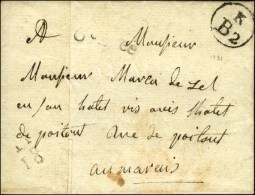 A Monsieur
K
B2
Monsieur Marcu de Zel
en son hotel vis avis lhotel
de poitout Rue de poitout
au marais